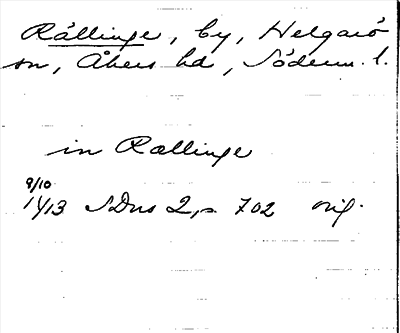 Rållinge, by, Helgarö
sn, Åkers hd, Söderm. l.
in Rællinge
9/10
1413 SDns 2, s. 702 orig.